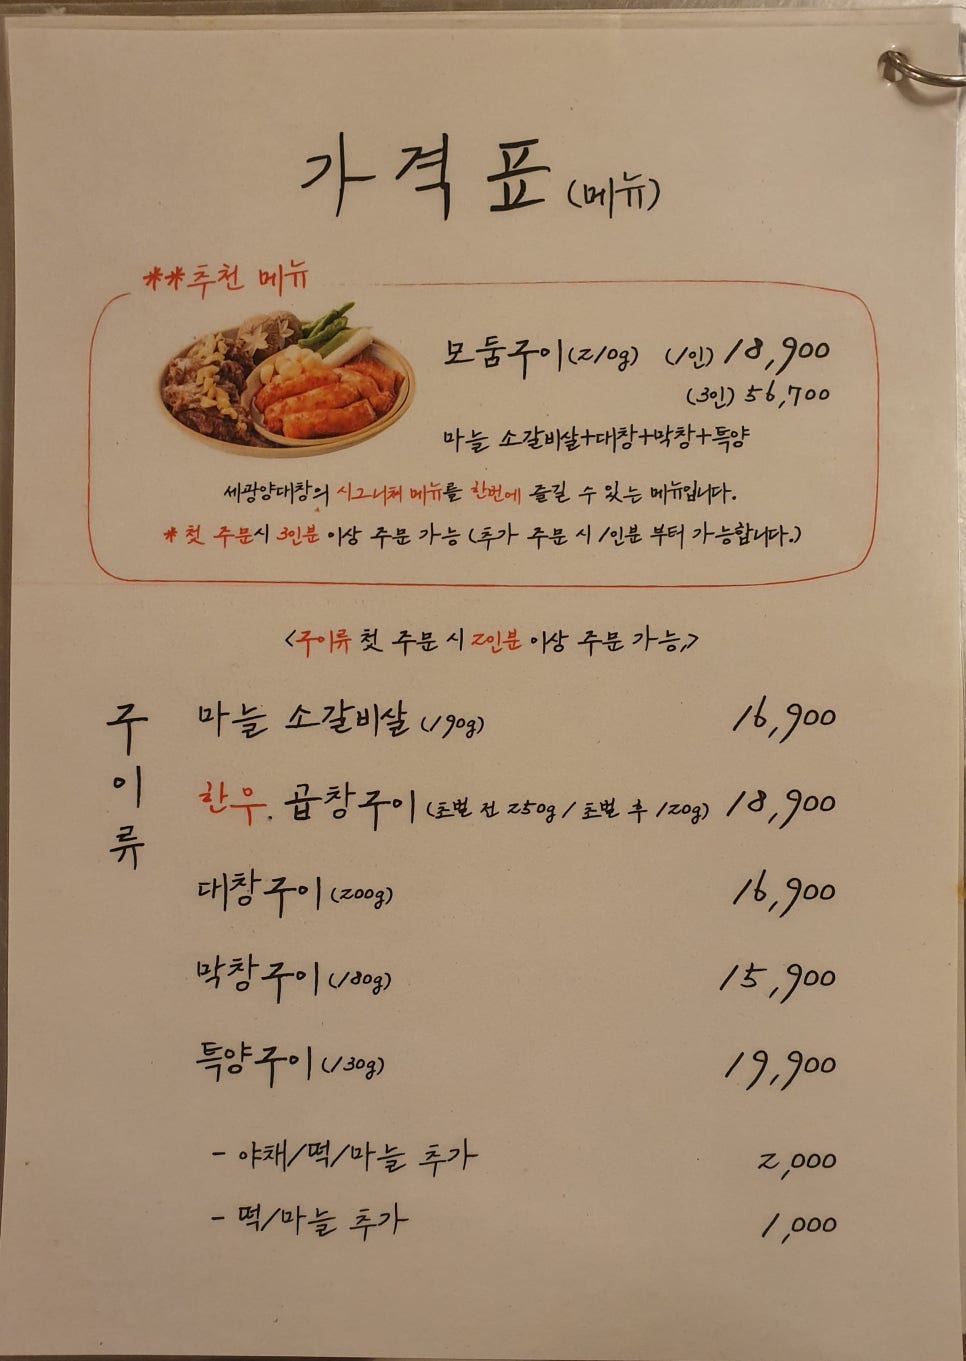 가격표 (메뉴)
**추천 메뉴
모둠구이(210g) (1인) 18,900
(3인) 56,700
마늘 소갈비살+대창+막창+특양
세광양대창의 시그니처 메뉴를 한번에 즐길 수 있는 메뉴입니다.
*첫 주문시 3인분 이상 주문 가능 (추가 주문 시 1인분 부터 가능합니다.)
<구이류 첫 주문 시 2인분 이상 주문 가능,>
구이류
마늘 소갈비살 (190g) 16,900
한우. 곱창구이 (초벌 전 250g / 초벌 후 120g) 18,900
대창구이 (200g) 16,900
막창구이 (180g) 15,900
특양구이 (130g) 19,900
- 야채/떡/마늘 추가 2,000
- 떡/마늘 추가 1,000